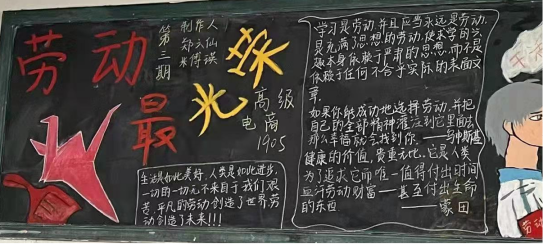 劳动最光荣
第三期
制作人
郑云仙
高级
电商
1905
生活是如此美好,人类是如此进步,
一切的一切无不来自于我们艰
苦、平凡的劳动创造了世界劳
动创造了未来!!!
学习是劳动,并且应当永远是劳动,
是充满了思想的劳动,使求学的兴
趣本身依赖于严肃的思想,而不是
依赖于任何不合乎实际的表面文
章.
如果你能成功地选择劳动,并把
自己的全部精神灌注到它里面去,
那么幸福就会找到你.——乌申斯基
健康的价值,贵重无比,它是人类
为了追求它而唯一值得付出时间
血汗劳动财富——甚至付出生命
的东西 ——蒙田
劳动